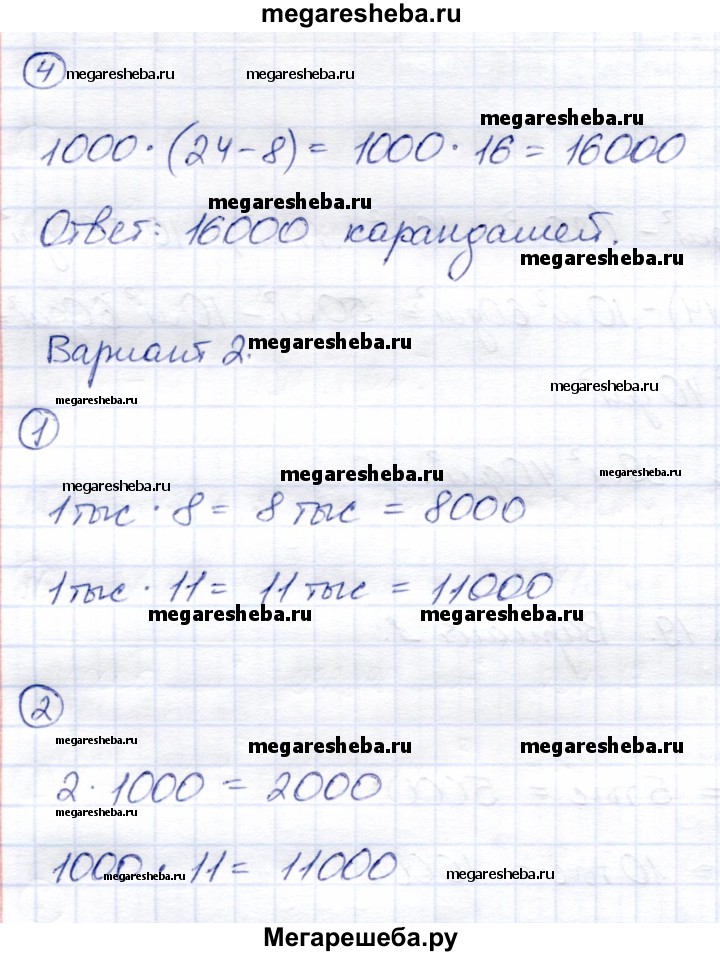 megaresheba.ru
4 megaresheba.ru megaresheba.ru
megaresheba.ru
1000 · (24 - 8) = 1000 · 16 = 16000
megaresheba.ru
Ответ: 16000 карандашей.
megaresheba.ru
Вариант 2. megaresheba.ru
megaresheba.ru
megaresheba.ru
1
megaresheba.ru megaresheba.ru
megaresheba.ru
1 тыс · 8 = 8 тыс = 8000
1 тыс · 11 = 11 тыс = 11000
megaresheba.ru megaresheba.ru
2
megaresheba.ru megaresheba.ru megaresheba.ru
2 · 1000 = 2000
megaresheba.ru
1000 · 11 = 11000
megaresheba.ru megaresheba.ru
Мегарешеба.ру